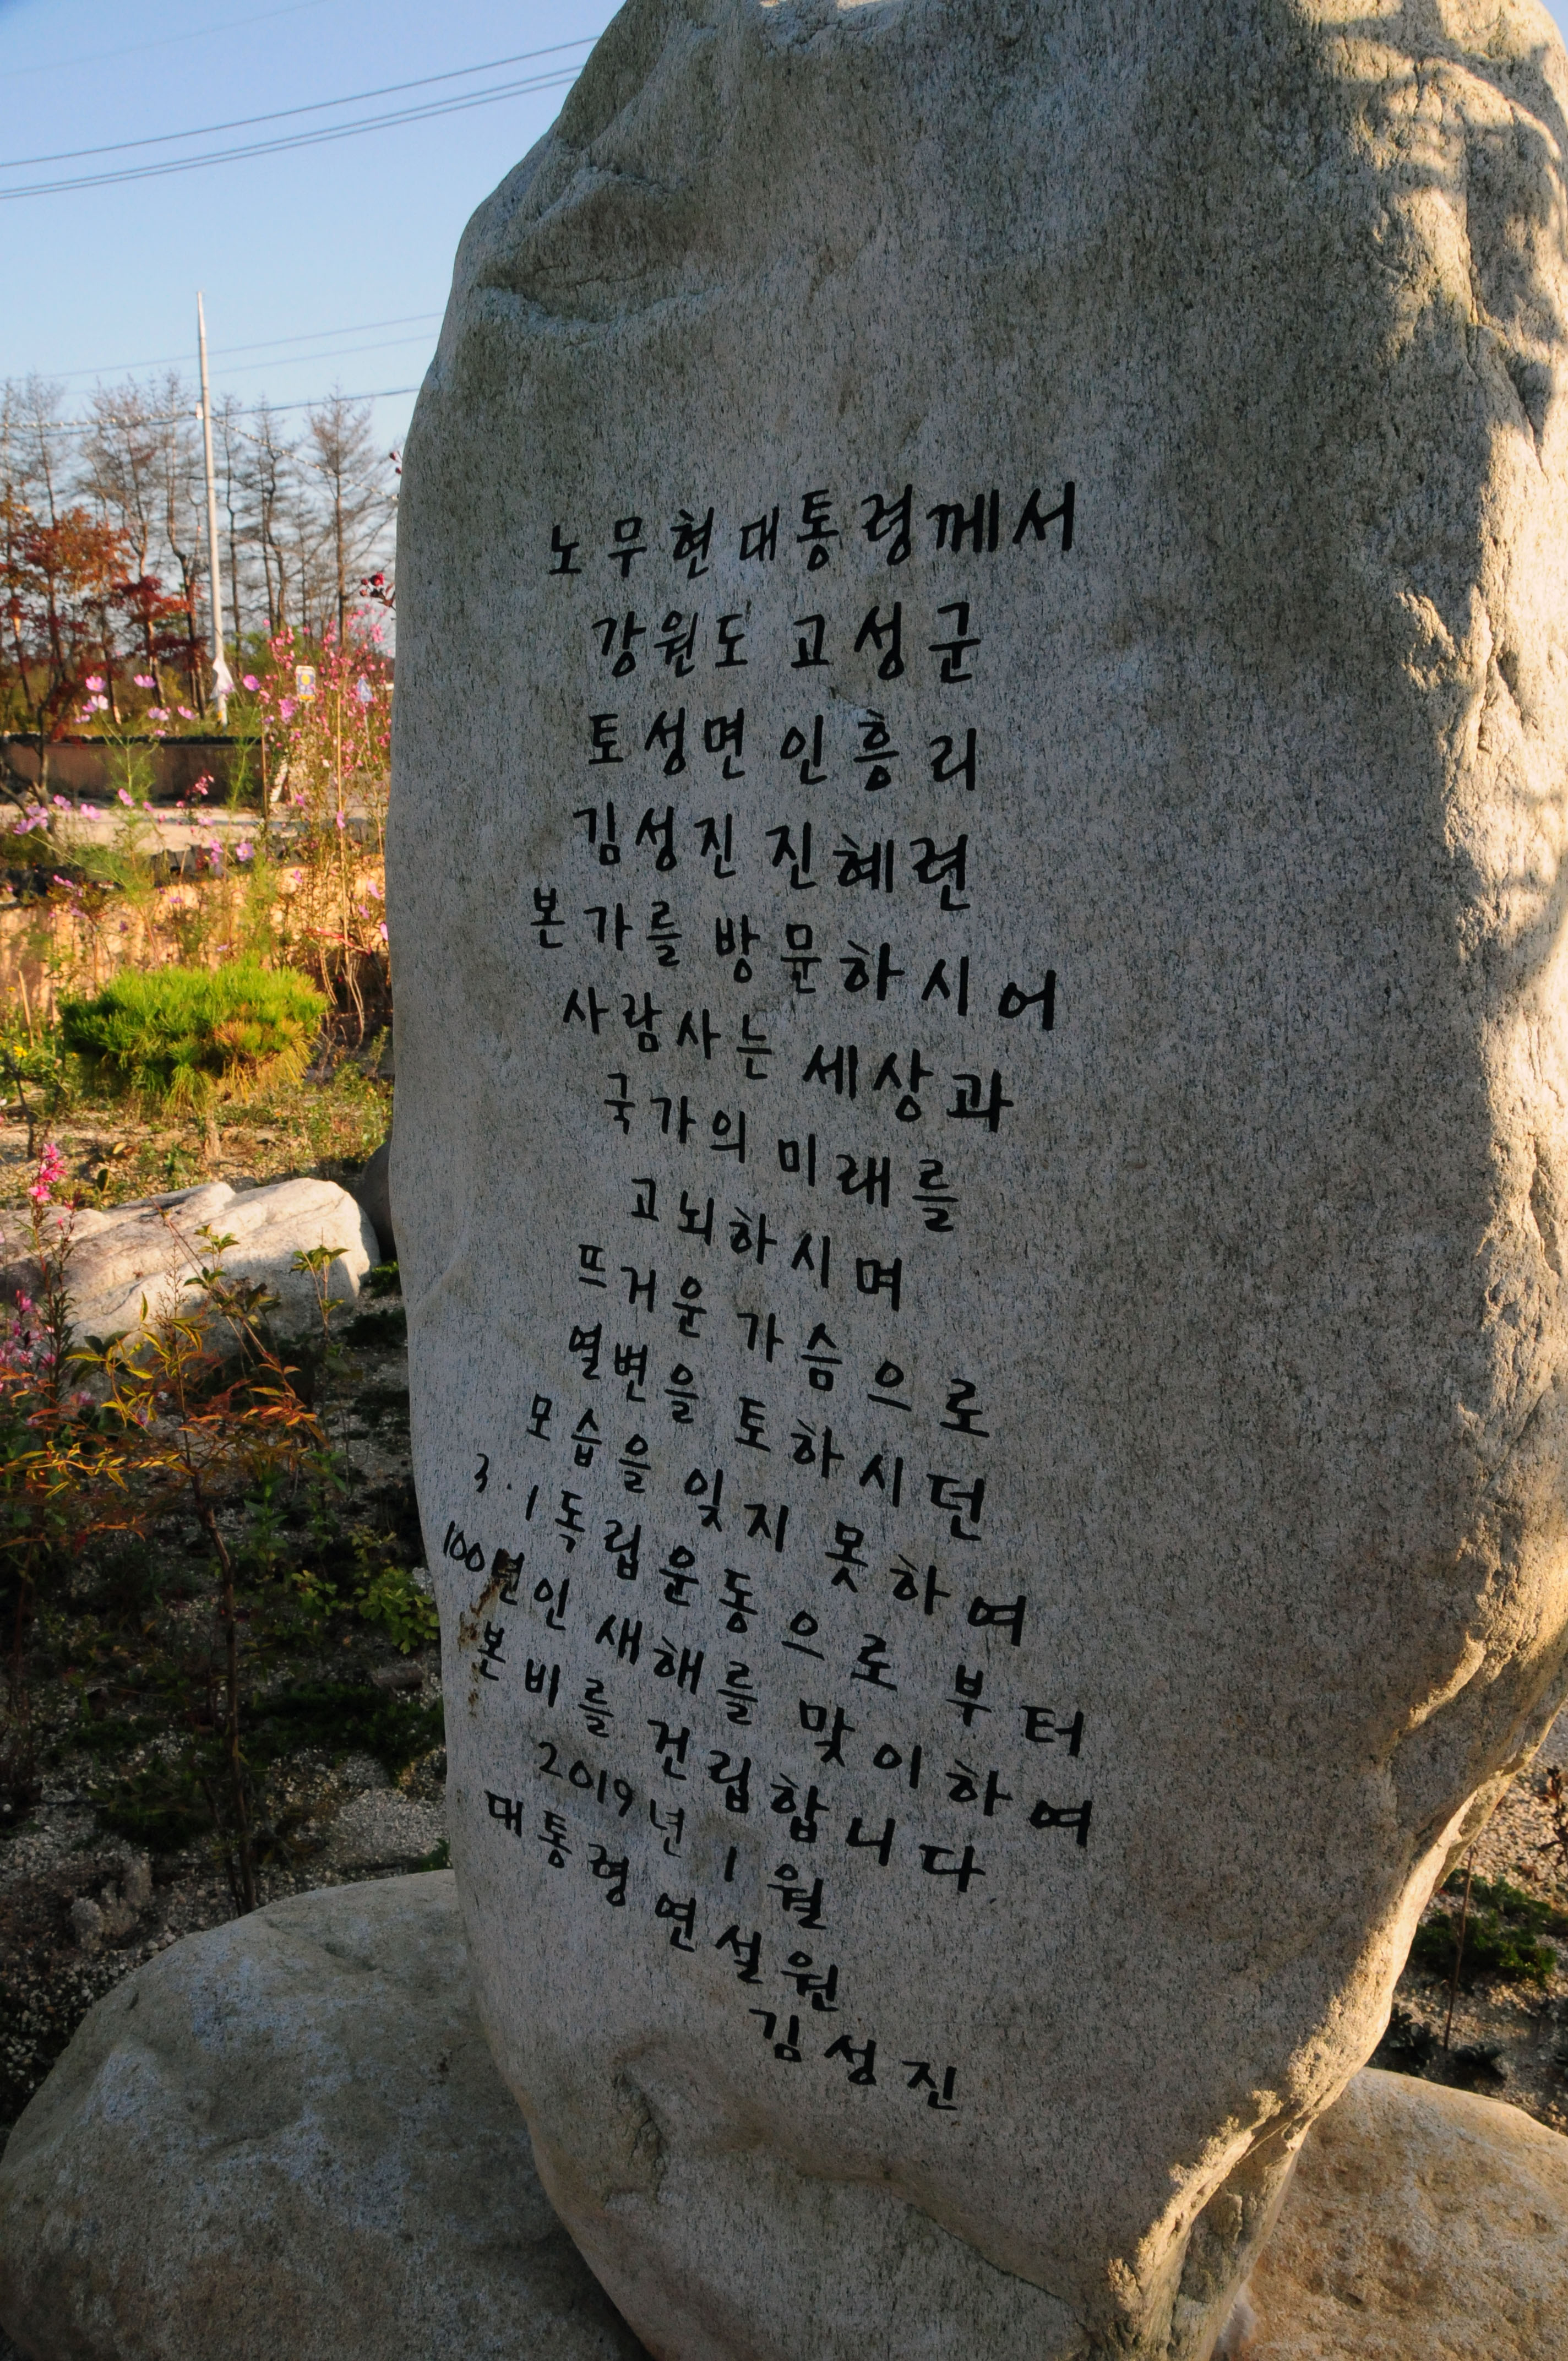 노무현대통령께서
강원도 고성군
토성면 인흥리
김성진 진혜련
본가를 방문하시어
사람사는 세상과
국가의 미래를
고뇌하시며
뜨거운 가슴으로
열변을 토하시던
모습을 잊지 못하여
3.1독립운동으로 부터
100년인 새해를 맞이하여
본비를 건립합니다
2019년 1월
대통령 연설원
김성진